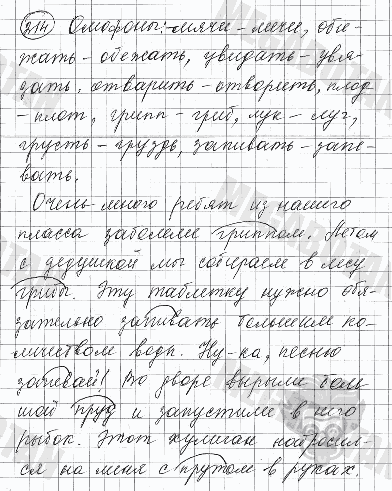 314) Омофоны: мячи - мечи, обе-
жать - обежать, увидать - увя-
дать, отварить - отворить, плод
- плот, грипп - гриб, лук - луг,
грусть - груздь, запивать - запе-
вать.
Очень много ребят из нашего
класса заболели гриппом. Летом
с дедушкой мы собираем в лесу
грибы. Эту таблетку нужно обя-
зательно запивать большим ко-
личеством воды. Ну-ка, песню
запевай! Во дворе вырыли боль
шой пруд и запустили в него
рыбок. Этот хулиган набросил-
ся на меня с прутом в руках.